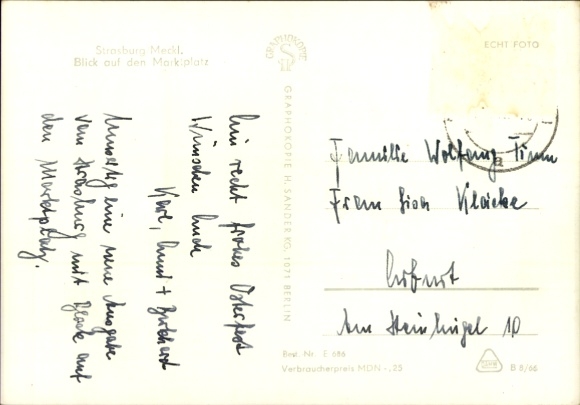 Strasburg Meckl.
Blick auf den Marktplatz
Ein recht frohes Osterfest
Wünschen Euch
Karl, +
Umseitig eine neue Ausgabe
von Strasburg mit Blick auf
den Marktplatz.
GRAPHOKOPIE
GRAPHOKOPIE H. SANDER KG, 1071 BERLIN
ECHT FOTO
Familie Wolfgang Timm
Erfurt
Am Steinhügel 10
Best. Nr. E 686
Verbraucherpreis MDN -,25
B 8/66